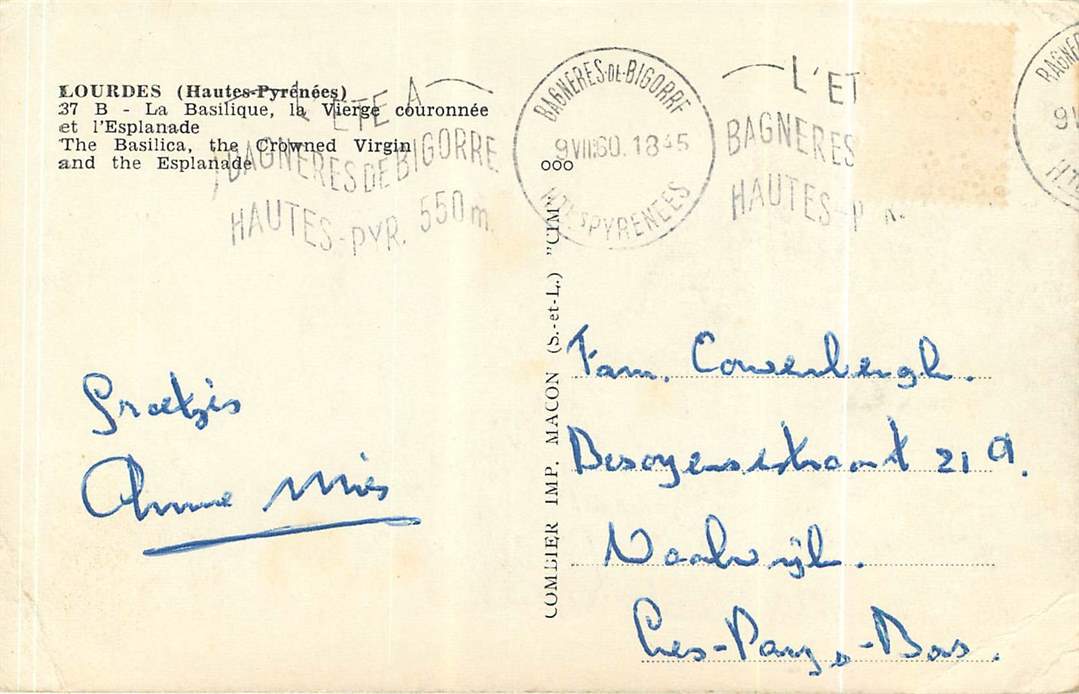 LOURDES (Hautes-Pyrénées)
37 B - La Basilique, la Vierge couronnée
et l'Esplanade
The Basilica, the Crowned Virgin
and the Esplanade
L'ÉTÉ A
BAGNERES DE BIGORRE
HAUTES-PYR. 550 m.
BAGNERES-DE-BIGORRE
9 VII 60. 18 45
HTES PYRENEES
L'ET
BAGNERES
HAUTES-P R.
BAGNE
9 V
HTE
ooo
COMBIER IMP. MACON (S.-et-L.) "CIM"
Groetjes
Anne Mies
Fam. Couwenbergh.
Besoyensestraat 21 a.
Waalwijk.
Les-Pays-Bas.